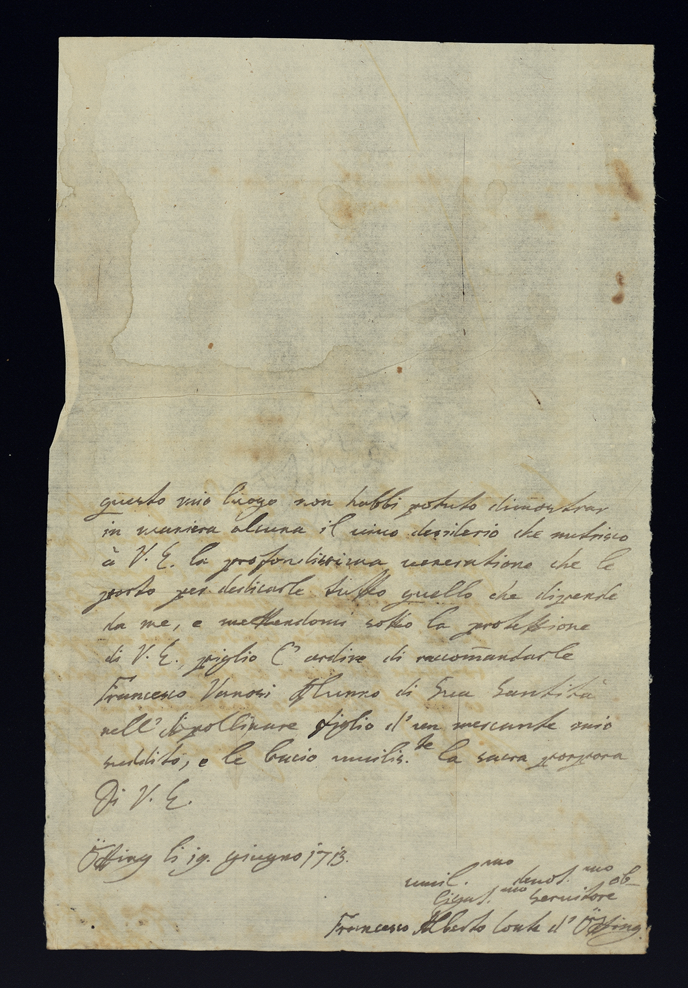 questo mio luogo non habbi potuto dimostrar
in maniera alcuna il vivo desiderio che nutrisco
à V. E. la profondissima veneratione che le
porto per dedicarle tutto quello che dipende
da me, e mettendomi sotto la protettione
di V. E. piglio l'ardire di racom̃andarle
Francesco Vanossi Alunno di Sua Santità
nell' Apollinare figlio d'un mercante mio
suddito, e le bacio umilis.te la sacra porpora
Di V. E.
Ötting li 19. giugno 1713.
umil.mo devot.mo ob-
ligat.mo Servitore
Francesco Alberto Conte d' Ötting